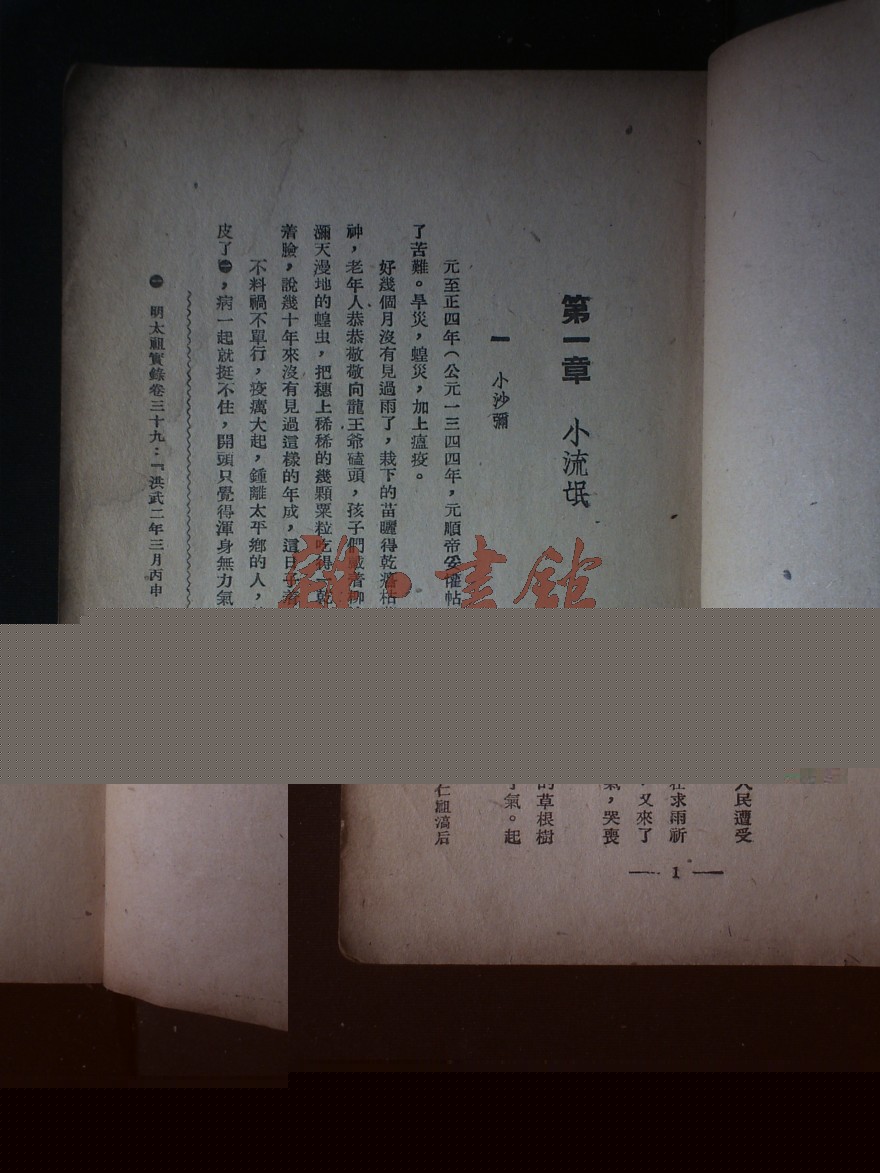 第一章 小流氓
一 小沙彌
元至正四年（公元一三四四年，元順帝妥懽帖
人民遭受
了苦難。旱災，蝗災，加上瘟疫。
好幾個月沒有見過雨了，栽下的苗曬得乾癟枯
在求雨祈
神，老年人恭恭敬敬向龍王爺磕頭，孩子們戴着柳
，又來了
瀰天漫地的蝗虫，把穗上稀稀的幾顆粟粒吃得一乾
氣，哭喪
着臉，說幾十年來沒有見過這樣的年成，這日子着
不料禍不單行，疫癘大起，鍾離太平鄉的人，
的草根樹
皮了㊀，病一起就挺不住，開頭只覺得渾身無力氣
了氣。起
㊀ 明太祖實錄卷三十九：『洪武二年三月丙申
仁祖滈后
— 1 —
書館